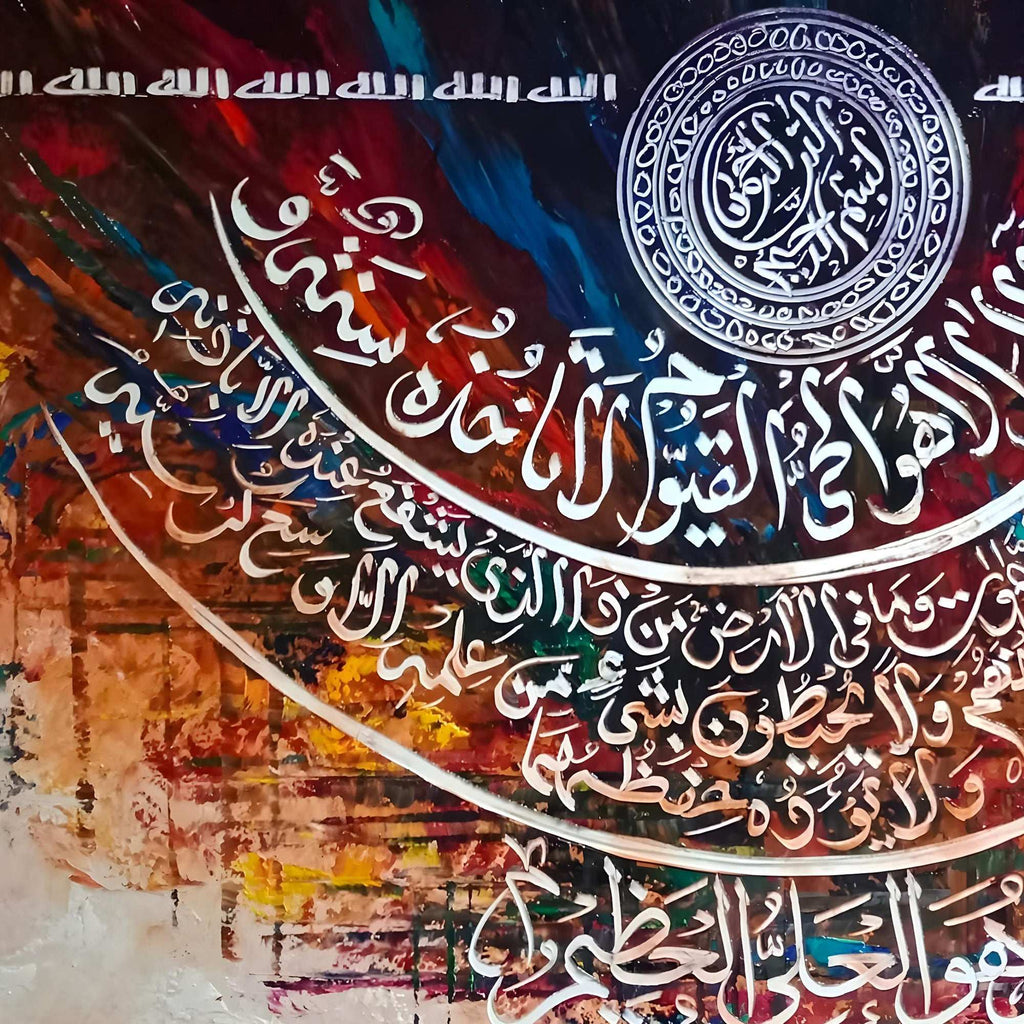 الله الله الله الله الله الله
بسم الله الرحمن الرحيم
إلا هو الحي القيوم لا تأخذه سنة و
وما في الأرض من ذا الذي يشفع عنده إلا
ولا يحيطون بشيء من علمه إلا
ولا يؤده حفظهما
هو العلي العظيم